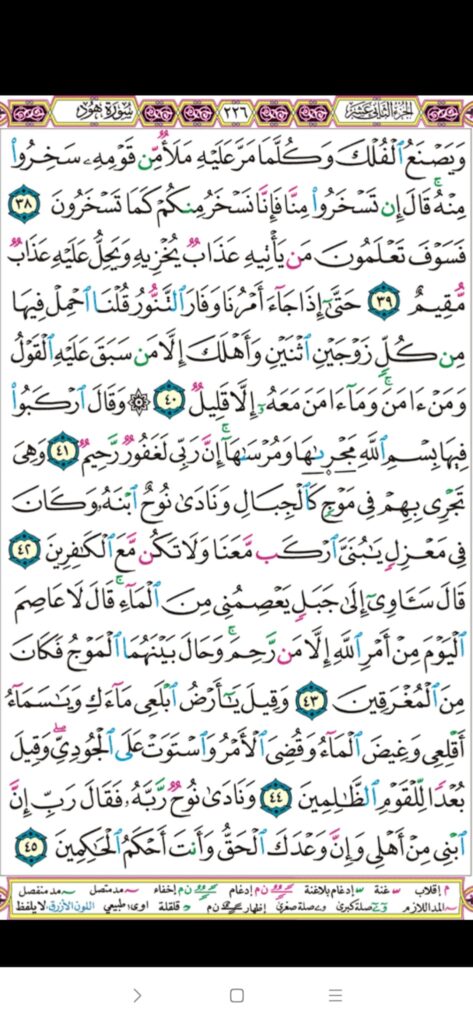 الجزء الثاني عشر ٢٢٦ سورة هود
وَيَصْنَعُ ٱلْفُلْكَ وَكُلَّمَا مَرَّ عَلَيْهِ مَلَأٌ مِّن قَوْمِهِۦ سَخِرُوا۟
مِنْهُ ۚ قَالَ إِن تَسْخَرُوا۟ مِنَّا فَإِنَّا نَسْخَرُ مِنكُمْ كَمَا تَسْخَرُونَ ٣٨
فَسَوْفَ تَعْلَمُونَ مَن يَأْتِيهِ عَذَابٌ يُخْزِيهِ وَيَحِلُّ عَلَيْهِ عَذَابٌ
مُّقِيمٌ ٣٩ حَتَّىٰٓ إِذَا جَآءَ أَمْرُنَا وَفَارَ ٱلتَّنُّورُ قُلْنَا ٱحْمِلْ فِيهَا
مِن كُلٍّ زَوْجَيْنِ ٱثْنَيْنِ وَأَهْلَكَ إِلَّا مَن سَبَقَ عَلَيْهِ ٱلْقَوْلُ
وَمَنْ ءَامَنَ ۚ وَمَآ ءَامَنَ مَعَهُۥٓ إِلَّا قَلِيلٌ ٤٠ ۞ وَقَالَ ٱرْكَبُوا۟
فِيهَا بِسْمِ ٱللَّهِ مَجْر۪ىٰهَا وَمُرْسَىٰهَآ ۚ إِنَّ رَبِّى لَغَفُورٌ رَّحِيمٌ ٤١ وَهِىَ
تَجْرِى بِهِمْ فِى مَوْجٍ كَٱلْجِبَالِ وَنَادَىٰ نُوحٌ ٱبْنَهُۥ وَكَانَ
فِى مَعْزِلٍ يَٰبُنَىَّ ٱرْكَب مَّعَنَا وَلَا تَكُن مَّعَ ٱلْكَٰفِرِينَ ٤٢
قَالَ سَـَٔاوِىٓ إِلَىٰ جَبَلٍ يَعْصِمُنِى مِنَ ٱلْمَآءِ ۚ قَالَ لَا عَاصِمَ
ٱلْيَوْمَ مِنْ أَمْرِ ٱللَّهِ إِلَّا مَن رَّحِمَ ۚ وَحَالَ بَيْنَهُمَا ٱلْمَوْجُ فَكَانَ
مِنَ ٱلْمُغْرَقِينَ ٤٣ وَقِيلَ يَٰٓأَرْضُ ٱبْلَعِى مَآءَكِ وَيَٰسَمَآءُ
أَقْلِعِى وَغِيضَ ٱلْمَآءُ وَقُضِىَ ٱلْأَمْرُ وَٱسْتَوَتْ عَلَى ٱلْجُودِىِّ ۖ وَقِيلَ
بُعْدًا لِّلْقَوْمِ ٱلظَّٰلِمِينَ ٤٤ وَنَادَىٰ نُوحٌ رَّبَّهُۥ فَقَالَ رَبِّ إِنَّ
ٱبْنِى مِنْ أَهْلِى وَإِنَّ وَعْدَكَ ٱلْحَقُّ وَأَنتَ أَحْكَمُ ٱلْحَٰكِمِينَ ٤٥
م إقلاب غنة إدغام بلاغنة ن م إدغام ن م إخفاء مد متصل مد منفصل
المد اللازم صلة كبرى صلة صغرى إظهار ن م قلقلة اوى: طبيعي اللون الأزرق: لا يلفظ